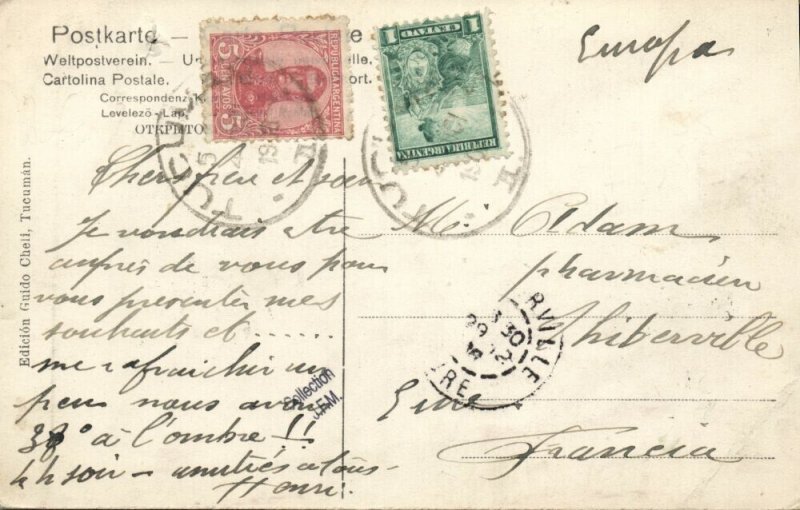 Postkarte —
Weltpostverein. — Un
Cartolina Postale.
Correspondenz K
Levelező-Lap.
ОТКРЫТО
REPUBLICA ARGENTINA
5 CENTAVOS 5
1 CENTAVO 1
REPUBLICA ARGENTINA
TUCUM
5
19
Europa
Edición Guido Cheli, Tucumán.
Chers frère et sœur
Je voudrais être
auprès de vous pour
vous presenter mes
souhaits et ......
me rafraichir un
peu nous avons
38° à l'ombre!!
4 h soir — amitiés à tous —
Henri.
Collection
J.F.M.
Mr. Adam
pharmacien
Thiberville
Eure
Francia
RVILLE
3 30
29 12
RE